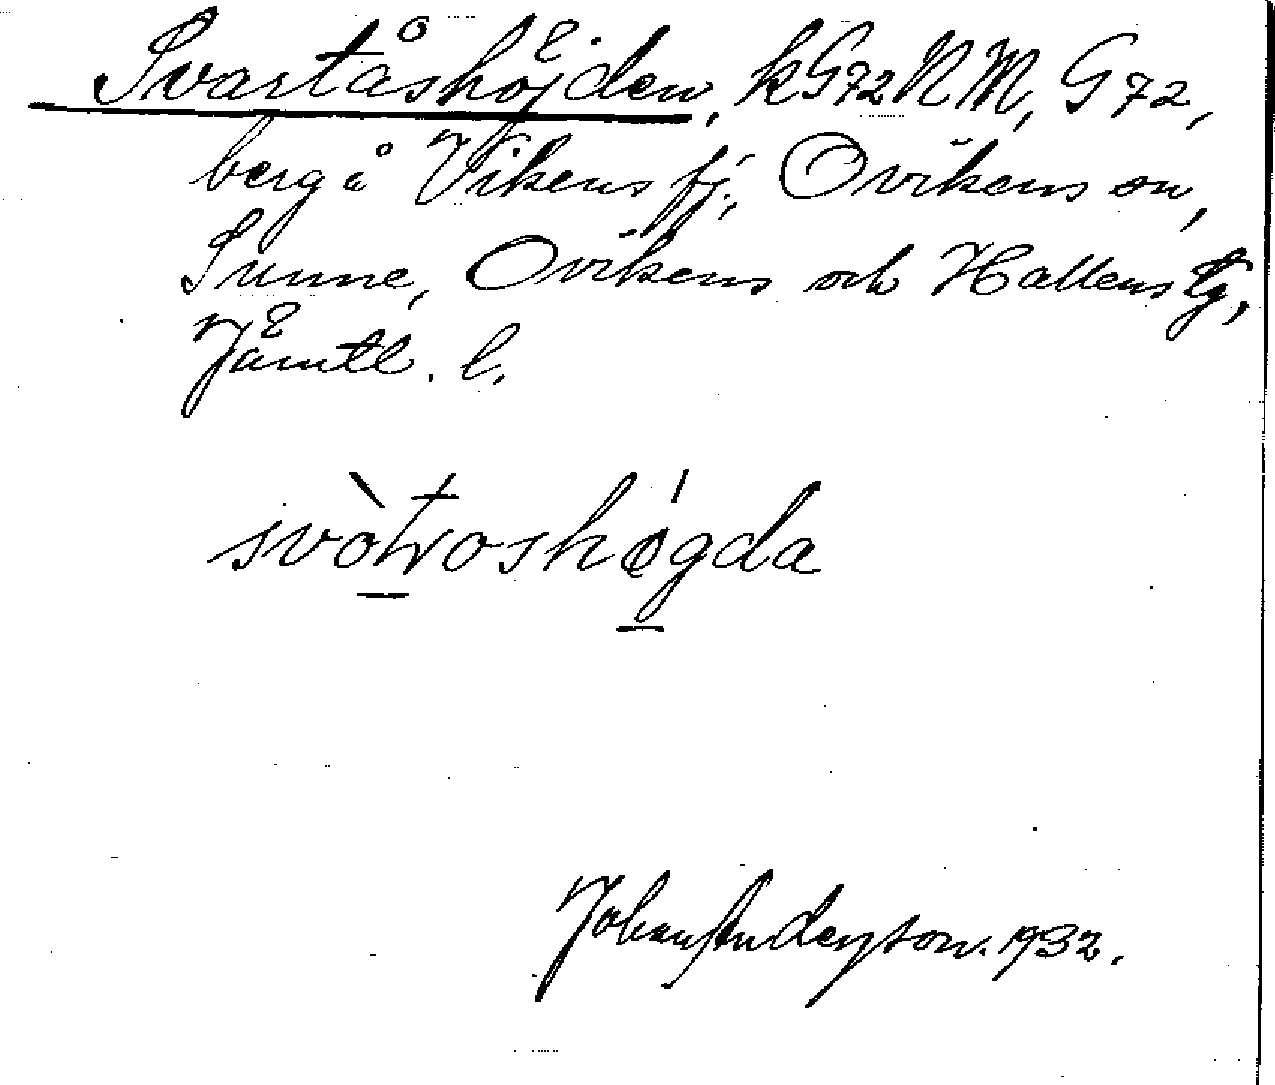 Svartåshöjden, kG72NM, G72,
berg å Vikens fj., Ovikens sn,
Sunne, Ovikens och Hallens tg,
Jämtl. l.
svòtroshøgda
Johan Anderson. 1932.